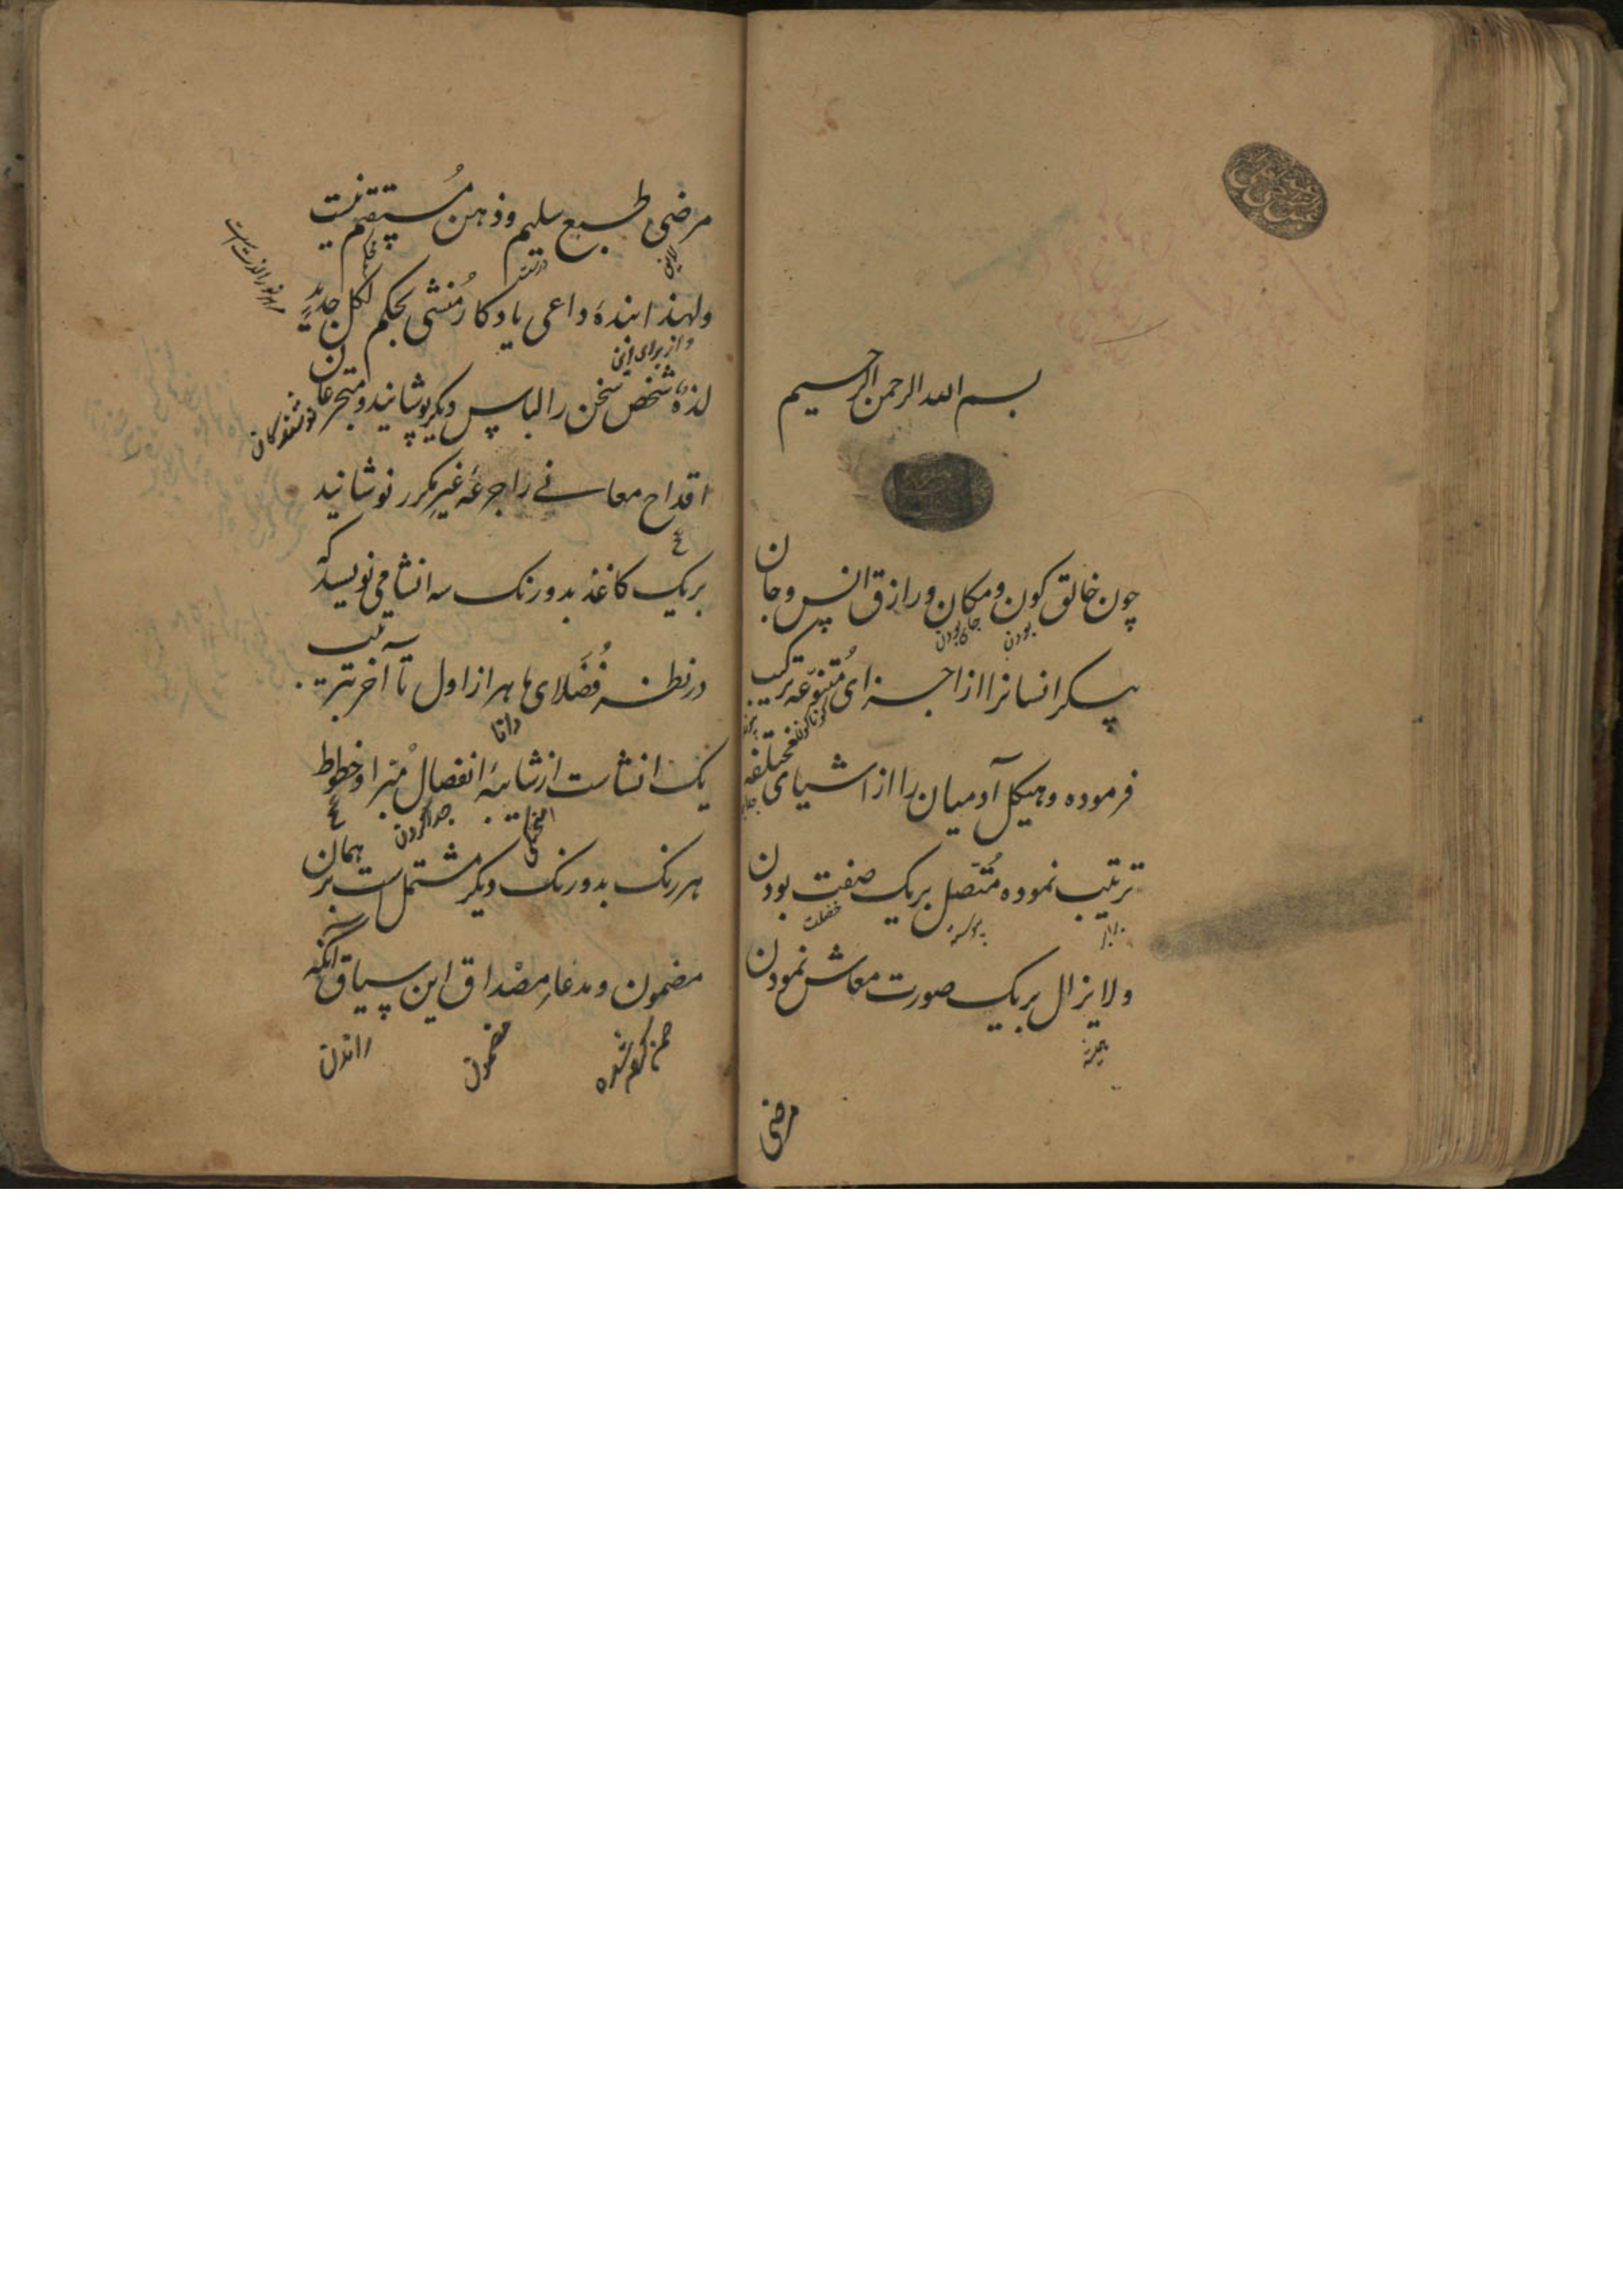 بسم الله الرحمن الرحیم
چون خالق کون و مکان و رازق انس و جان
بودن
جای بودن
پیکر انسانرا از اجزای مُتنوّعه ترکیب
گوناگون
فرموده و هیکل آدمیان را از اشیای مختلفه
ترتیب نموده مُتّصل بر یک صفت بودن
پیوسته
خصلت
ولایزال بر یک صورت معاش نمودن
همیشه
مرضی
مرضی طبع سلیم و ذهن مُستقیم نیست
ولهذا بندهٔ داعی یادکار مُنشی بحکم لکل جدیدٍ
و از برای این
هر نو را لذت است
لذةٌ شخص سخن را لباس دیکر پوشانید و متجرعان
نوشندکان
اقداح معانے را جرعهٔ غیر مکرر نوشانید
بر یک کاغذ بدو رنک سه انشا می نویسد که
در نظر فُضَلای ماهر از اول تا آخر بترتیب
دانا
یک انشاست از شائبهٔ انفصال مُبرا و خطوط
امیختکی
جدا کردن
هر رنک بدو رنک دیکر مشتمل است بر همان
مضمون و مدعا مِصْداق این سیاق آنکه
مضمون
راندن